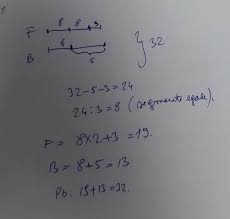 F 8 8 3
B 8 5 } 32
32-5-3=24
24:3=8 (segmente egale).
F = 8x2+3=19.
B = 8+5=13
Pb: 19+13=32.